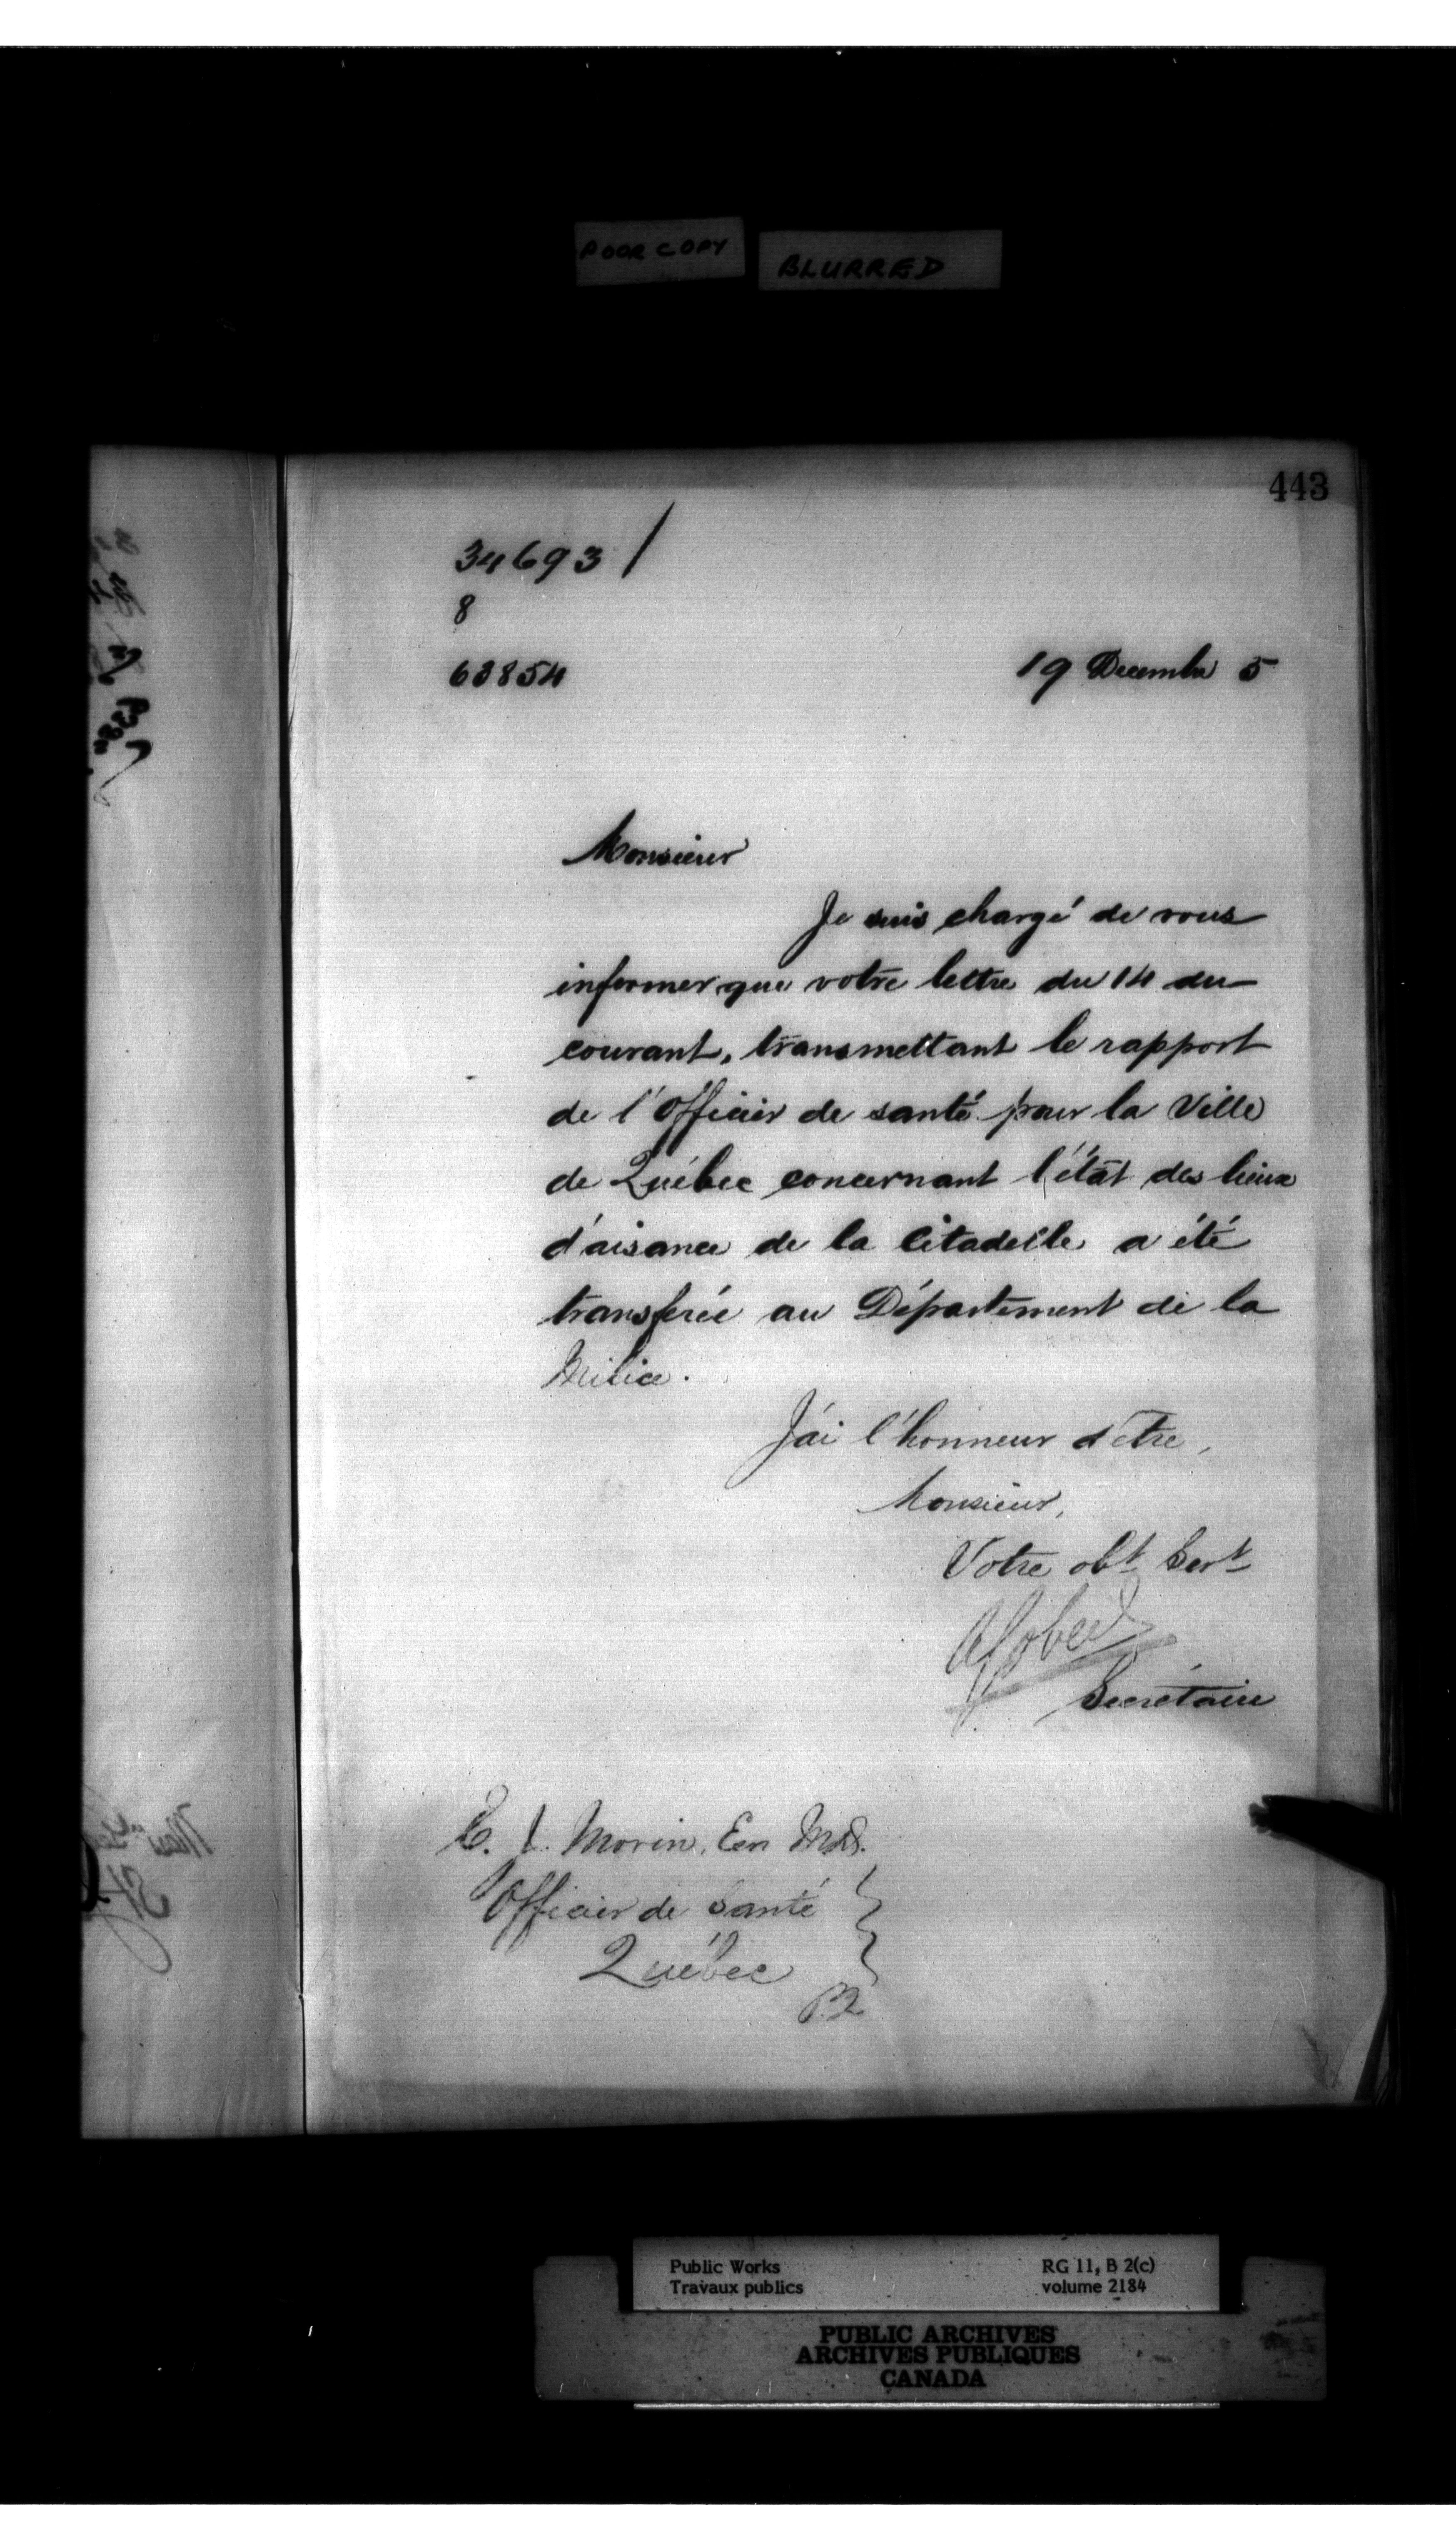 POOR COPY BLURRED
443
34693 /
8
63854
19 Decembre 5
Monsieur
Je suis chargé de vous
informer que votre lettre du 14 du
courant, transmettant le rapport
de l'Officier de santé pour la Ville
de Québec concernant l'état des lieux
d'aisance de la Citadelle a été
transferée au Département de la
Milice.
J'ai l'honneur d'être,
Monsieur,
Votre obt Sert
A Gobeil
Secrétaire
J. Morin, Ecr M.D.
Officier de Santé
Québec
Public Works
Travaux publics
RG 11, B 2(c)
volume 2184
PUBLIC ARCHIVES
ARCHIVES PUBLIQUES
CANADA